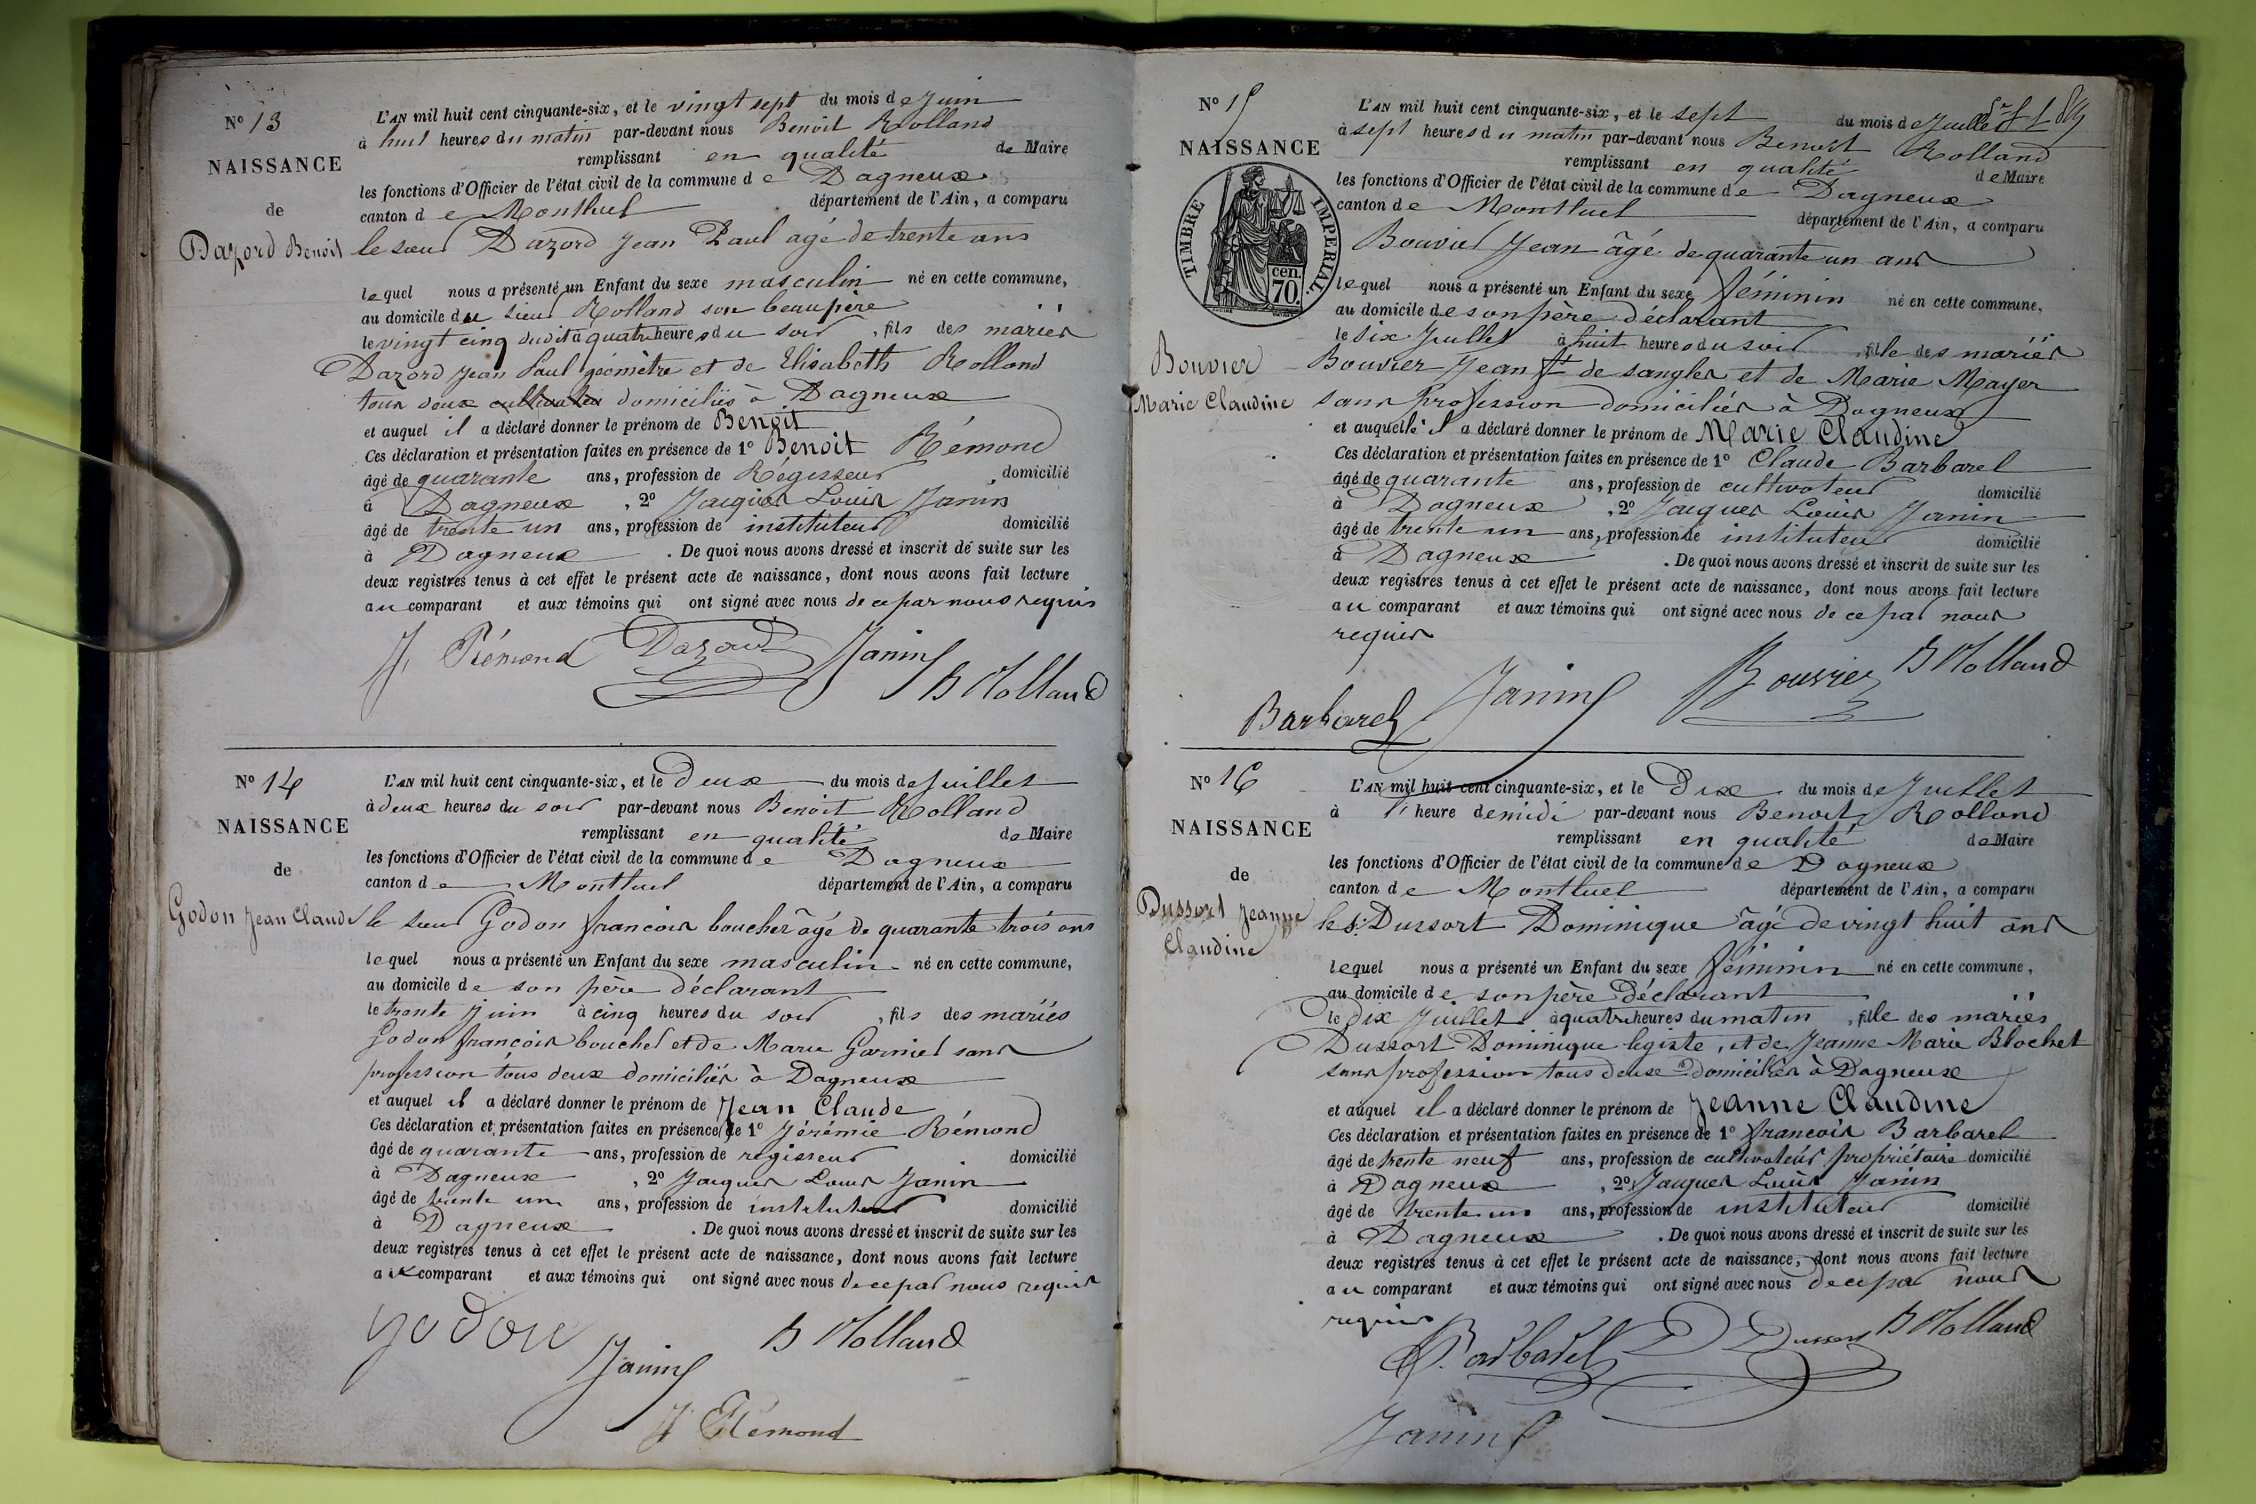 N° 13
NAISSANCE
de
Dazord Benoit
L'AN mil huit cent cinquante-six, et le vingt sept du mois de Juin
à huit heures du matin par-devant nous Benoit Rolland
remplissant en qualité de Maire
les fonctions d'Officier de l'état civil de la commune de Dagneux
canton de Montluel département de l'Ain, a comparu
le sieur Dazord Jean Paul agé de trente ans
lequel nous a présenté un Enfant du sexe masculin né en cette commune,
au domicile du sieur Rolland son beau père
le vingt cinq dudit à quatre heures du soir, fils des mariés
Dazord Jean Paul géomètre et de Elisabeth Rolland
tous deux domiciliés à Dagneux
et auquel il a déclaré donner le prénom de Benoit
Ces déclaration et présentation faites en présence de 1° Benoit Rémond
âgé de quarante ans, profession de Régisseur domicilié
à Dagneux, 2° Jacques Louis Janin
âgé de trente un ans, profession de instituteur domicilié
à Dagneux. De quoi nous avons dressé et inscrit de suite sur les
deux registres tenus à cet effet le présent acte de naissance, dont nous avons fait lecture
au comparant et aux témoins qui ont signé avec nous de ce par nous requis
J. Rémond Dazord Janin B Rolland
N° 14
NAISSANCE
de
Godon Jean Claude
L'AN mil huit cent cinquante-six, et le Deux du mois de Juillet
à deux heures du soir par-devant nous Benoit Rolland
remplissant en qualité de Maire
les fonctions d'Officier de l'état civil de la commune de Dagneux
canton de Montluel département de l'Ain, a comparu
le sieur Godon francois boucher âgé de quarante trois ans
lequel nous a présenté un Enfant du sexe masculin né en cette commune,
au domicile de son père déclarant
le trente Juin à cinq heures du soir, fils des mariés
Godon francois boucher et de Marie Garnier sans
profession tous deux domiciliés à Dagneux
et auquel il a déclaré donner le prénom de Jean Claude
Ces déclaration et présentation faites en présence de 1° Jérémie Rémond
âgé de quarante ans, profession de régisseur domicilié
à Dagneux, 2° Jacques Louis Janin
âgé de trente un ans, profession de instituteur domicilié
à Dagneux. De quoi nous avons dressé et inscrit de suite sur les
deux registres tenus à cet effet le présent acte de naissance, dont nous avons fait lecture
au comparant et aux témoins qui ont signé avec nous de ce par nous requis
Godon B Rolland
Janin
J Rémond
N° 15
NAISSANCE
TIMBRE IMPERIAL.
cen.
70.
Bouvier
Marie Claudine
L'AN mil huit cent cinquante-six, et le sept du mois de Juillet
à sept heures du matin par-devant nous Benoit Rolland
remplissant en qualité de Maire
les fonctions d'Officier de l'état civil de la commune de Dagneux
canton de Montluel département de l'Ain, a comparu
Bouvier Jean âgé de quarante un ans
lequel nous a présenté un Enfant du sexe féminin né en cette commune,
au domicile de son père déclarant
le six Juillet à huit heures du soir, fille des mariés
Bouvier Jean de sangles et de Marie Mayer
sans profession domiciliés à Dagneux
et auquelle il a déclaré donner le prénom de Marie Claudine
Ces déclaration et présentation faites en présence de 1° Claude Barbarel
âgé de quarante ans, profession de cultivateur domicilié
à Dagneux, 2° Jacques Louis Janin
âgé de trente un ans, profession de instituteur domicilié
à Dagneux. De quoi nous avons dressé et inscrit de suite sur les
deux registres tenus à cet effet le présent acte de naissance, dont nous avons fait lecture
au comparant et aux témoins qui ont signé avec nous de ce par nous
requis
Barbarel Janin Bouvier B Rolland
N° 16
NAISSANCE
de
Dussort Jeanne
Claudine
L'AN mil huit cent cinquante-six, et le Dix du mois de Juillet
à l' heure de midi par-devant nous Benoit Rolland
remplissant en qualité de Maire
les fonctions d'Officier de l'état civil de la commune de Dagneux
canton de Montluel département de l'Ain, a comparu
le s: Dussort Dominique âgé de vingt huit ans
lequel nous a présenté un Enfant du sexe féminin né en cette commune,
au domicile de son père Déclarant
le Dix Juillet à quatre heures du matin, fille des mariés
Dussort Dominique légiste, et de Jeanne Marie Blochet
sans profession tous deux domiciliés à Dagneux
et auquel il a déclaré donner le prénom de Jeanne Claudine
Ces déclaration et présentation faites en présence de 1° francois Barbarel
âgé de trente neuf ans, profession de cultivateur propriétaire domicilié
à Dagneux, 2° Jacques Louis Janin
âgé de trente un ans, profession de instituteur domicilié
à Dagneux. De quoi nous avons dressé et inscrit de suite sur les
deux registres tenus à cet effet le présent acte de naissance, dont nous avons fait lecture
au comparant et aux témoins qui ont signé avec nous de ce par nous
requis
F. Barbarel D Dussort B Rolland
Janin